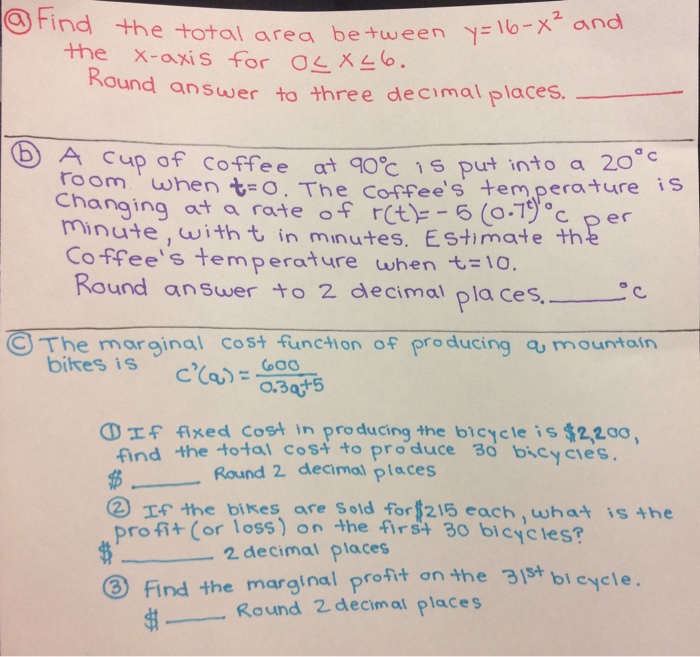 ⓐ Find the total area between y=16-x² and
the x-axis for 0≤x≤6.
Round answer to three decimal places. ______
ⓑ A cup of coffee at 90°C is put into a 20°C
room when t=0. The coffee's temperature is
changing at a rate of r(t)=-5(0.7ᵗ)°C per
minute, with t in minutes. Estimate the
Coffee's temperature when t=10.
Round answer to 2 decimal places. ______°C
ⓒ The marginal cost function of producing q mountain
bikes is C'(q)= 600/0.3q+5
① If fixed cost in producing the bicycle is $2,200,
find the total cost to produce 30 bicycles.
$ ______ Round 2 decimal places
② If the bikes are sold for $215 each, what is the
profit (or loss) on the first 30 bicycles?
$ ______ 2 decimal places
③ Find the marginal profit on the 31st bicycle.
$ ______ Round 2 decimal places